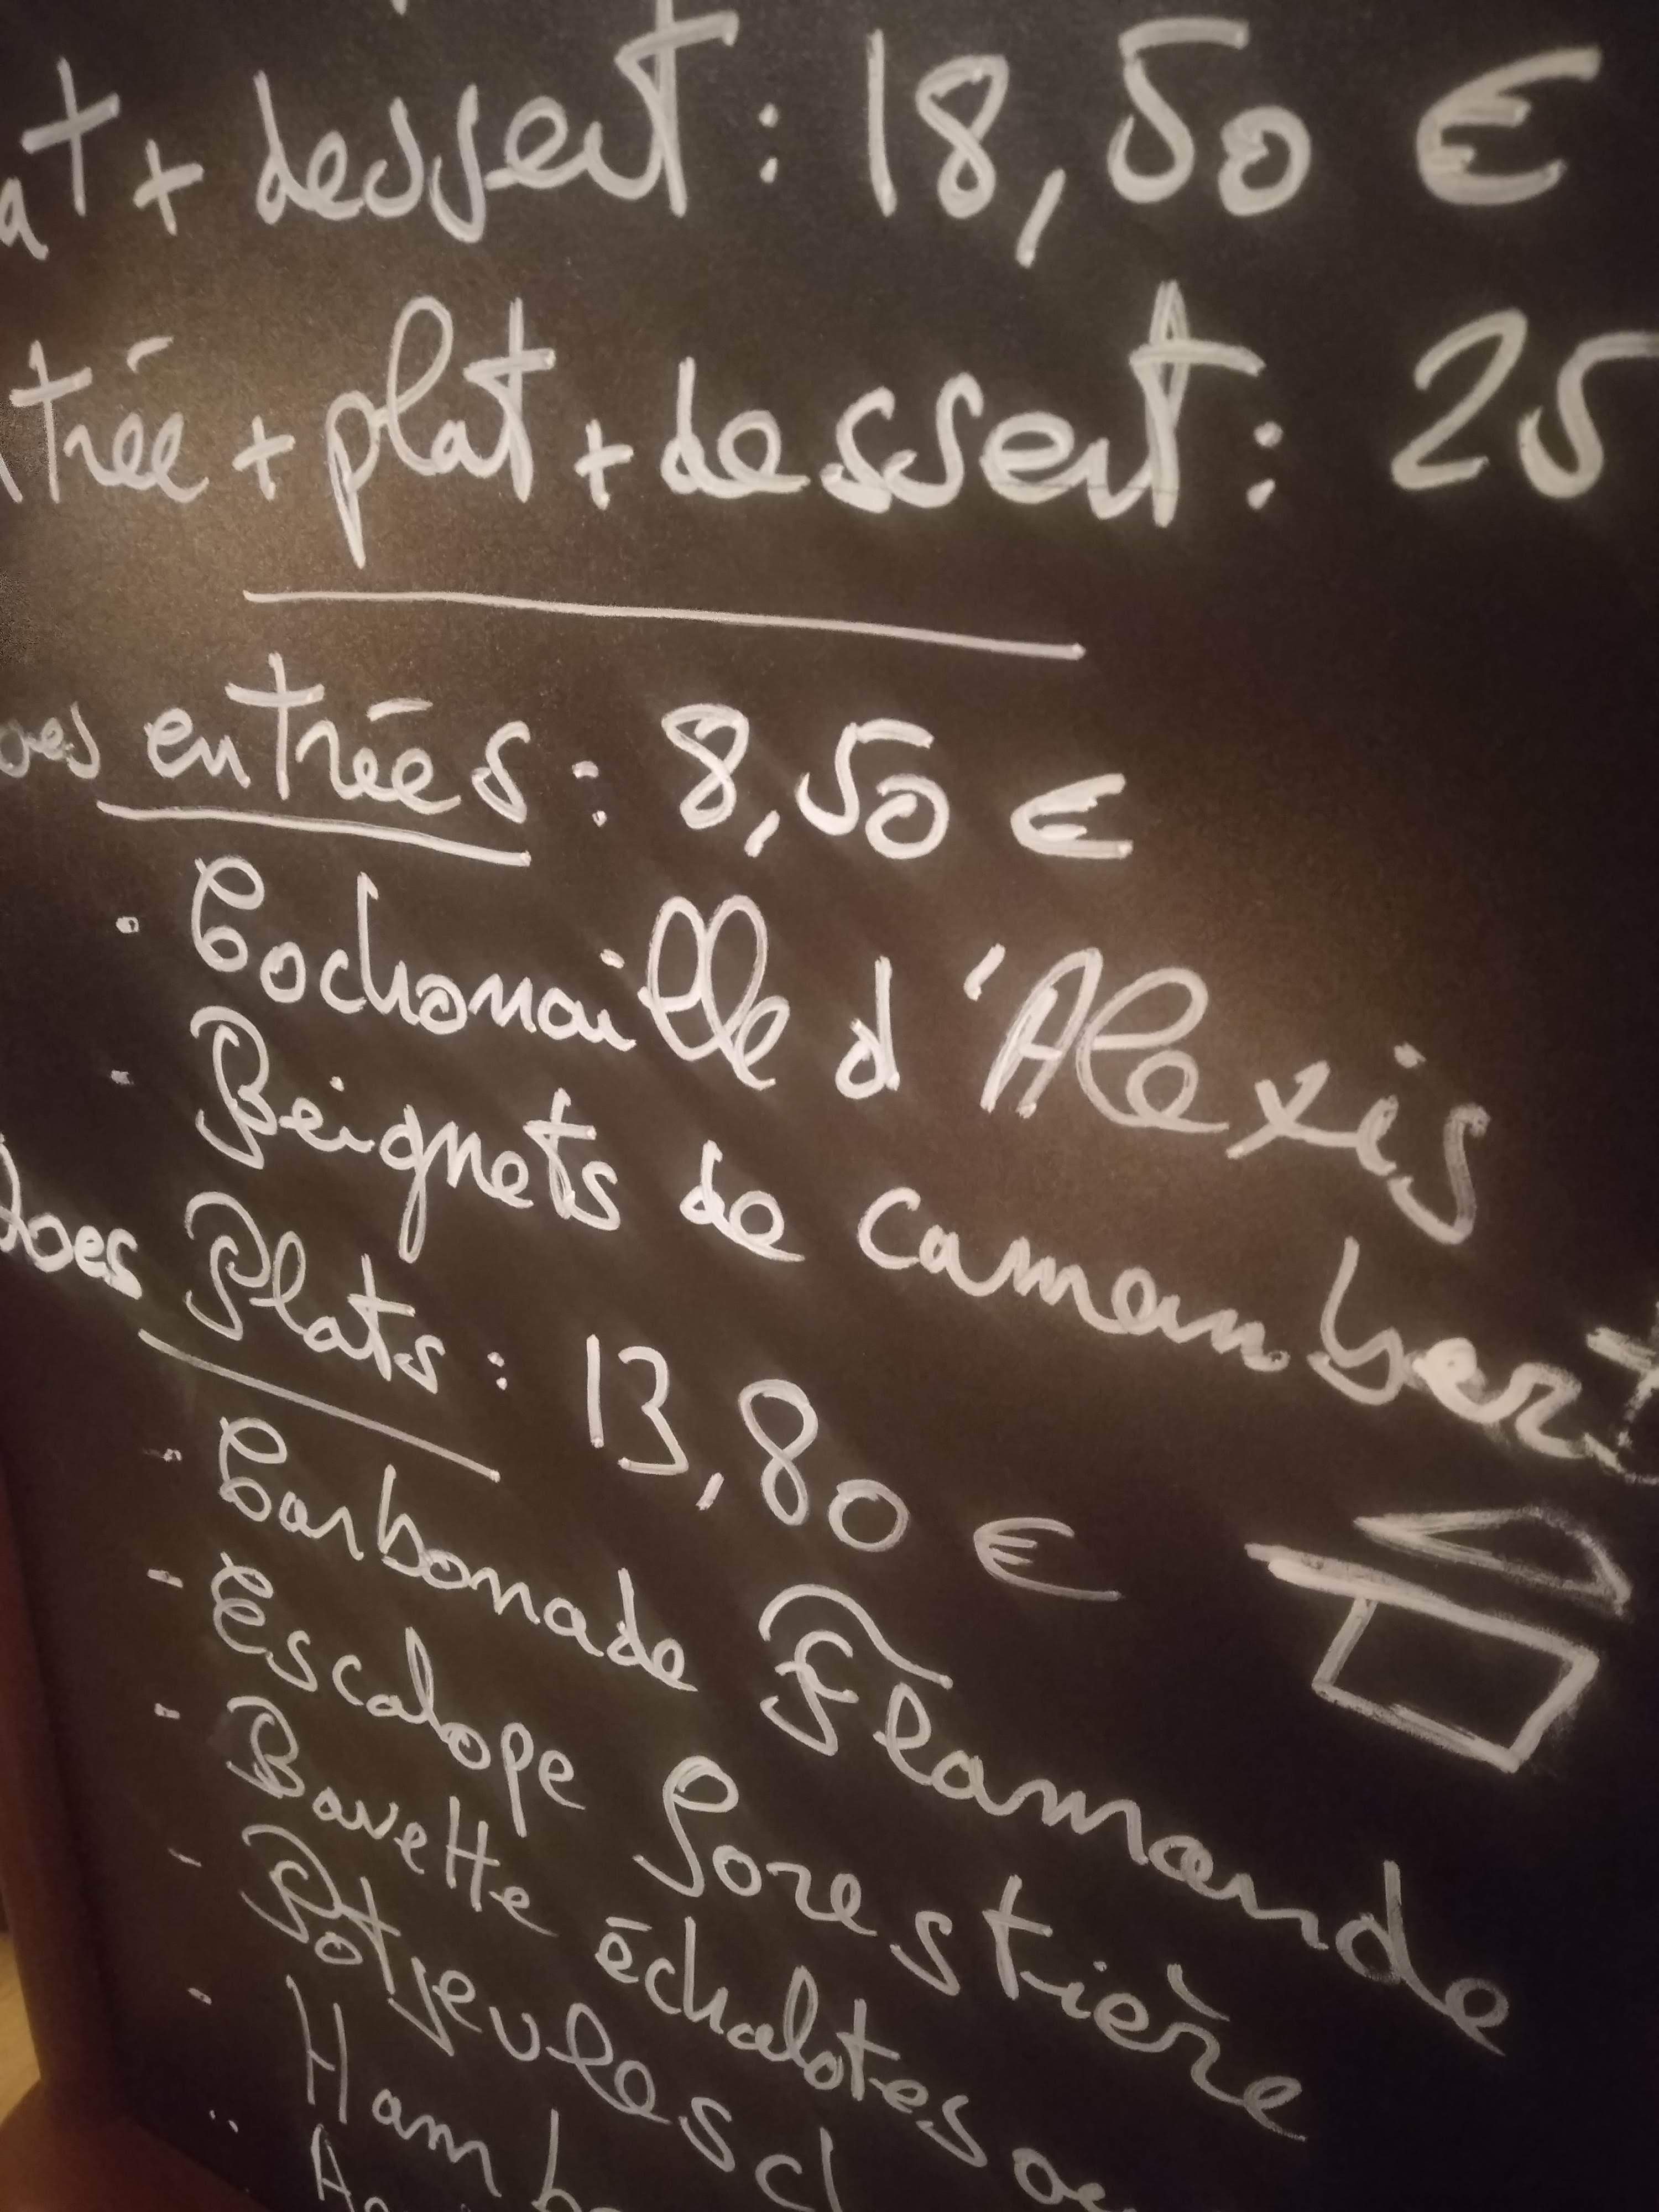 at + dessert : 18,50 €
trée + plat + dessert : 25
entrées : 8,50 €
· Cochonaille d'Alexis
· Beignets de camembert
Plats : 13,80 €
- Carbonade Flamande
- Escalope Forestière
- Bavette échalotes ou
- Potjevlesch
- Hamb